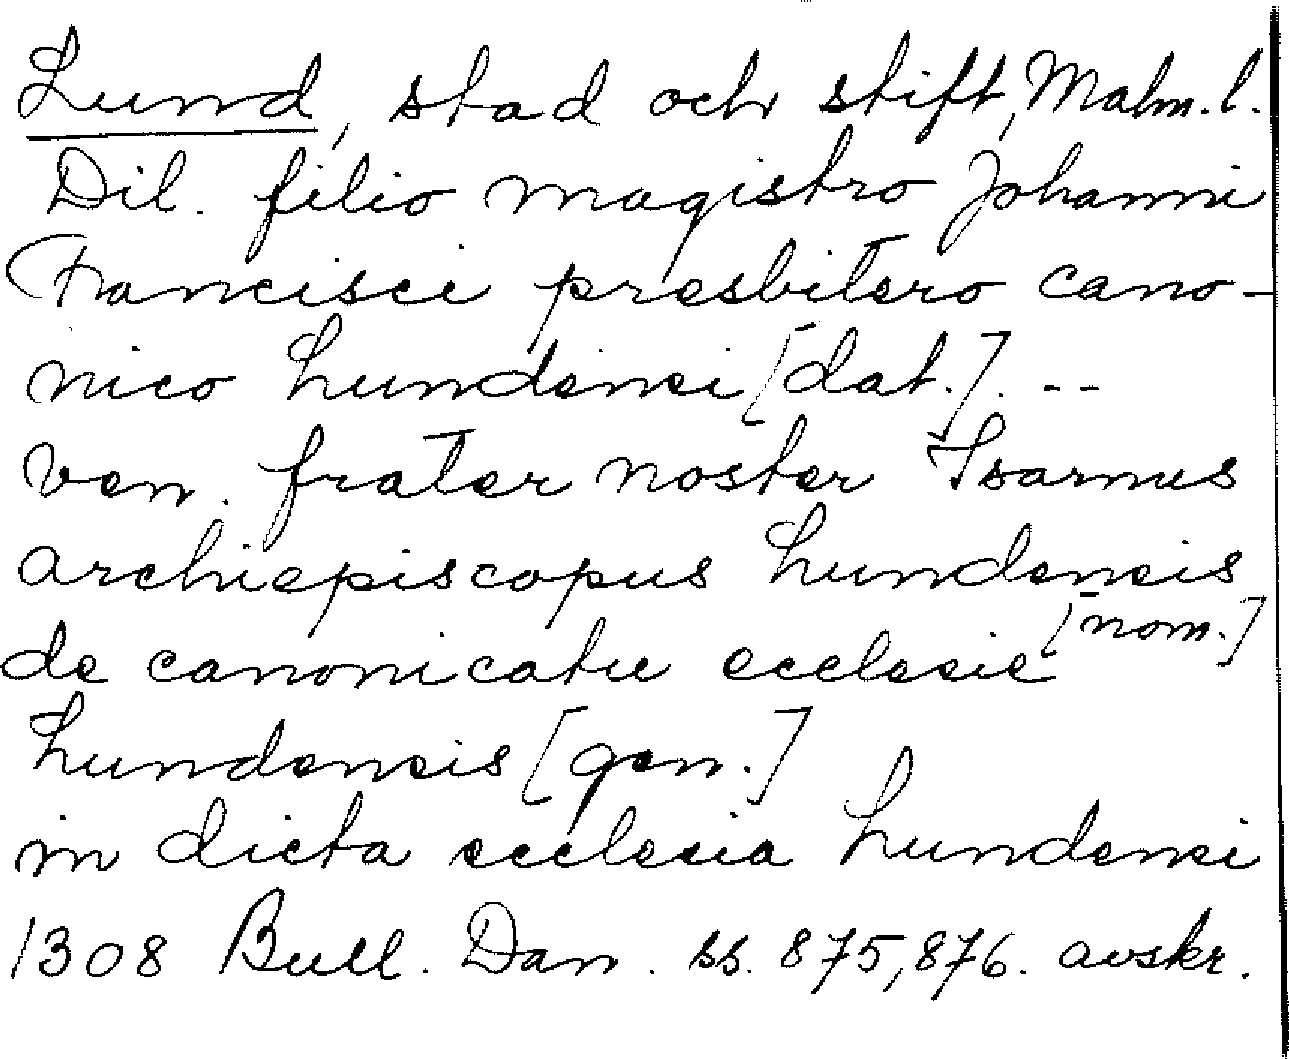 Lund, stad och stift, Malm. l.
Dil. filio magistro Johanni
Francisci presbitero cano-
nico Lundensi [dat.]. --
ven. frater noster Isarnus
archiepiscopus Lundensis
[nom.]
de canonicatu ecclesie
Lundensis [gen.]
in dicta ecclesia Lundensi
1308 Bull. Dan. ss. 875, 876. avskr.